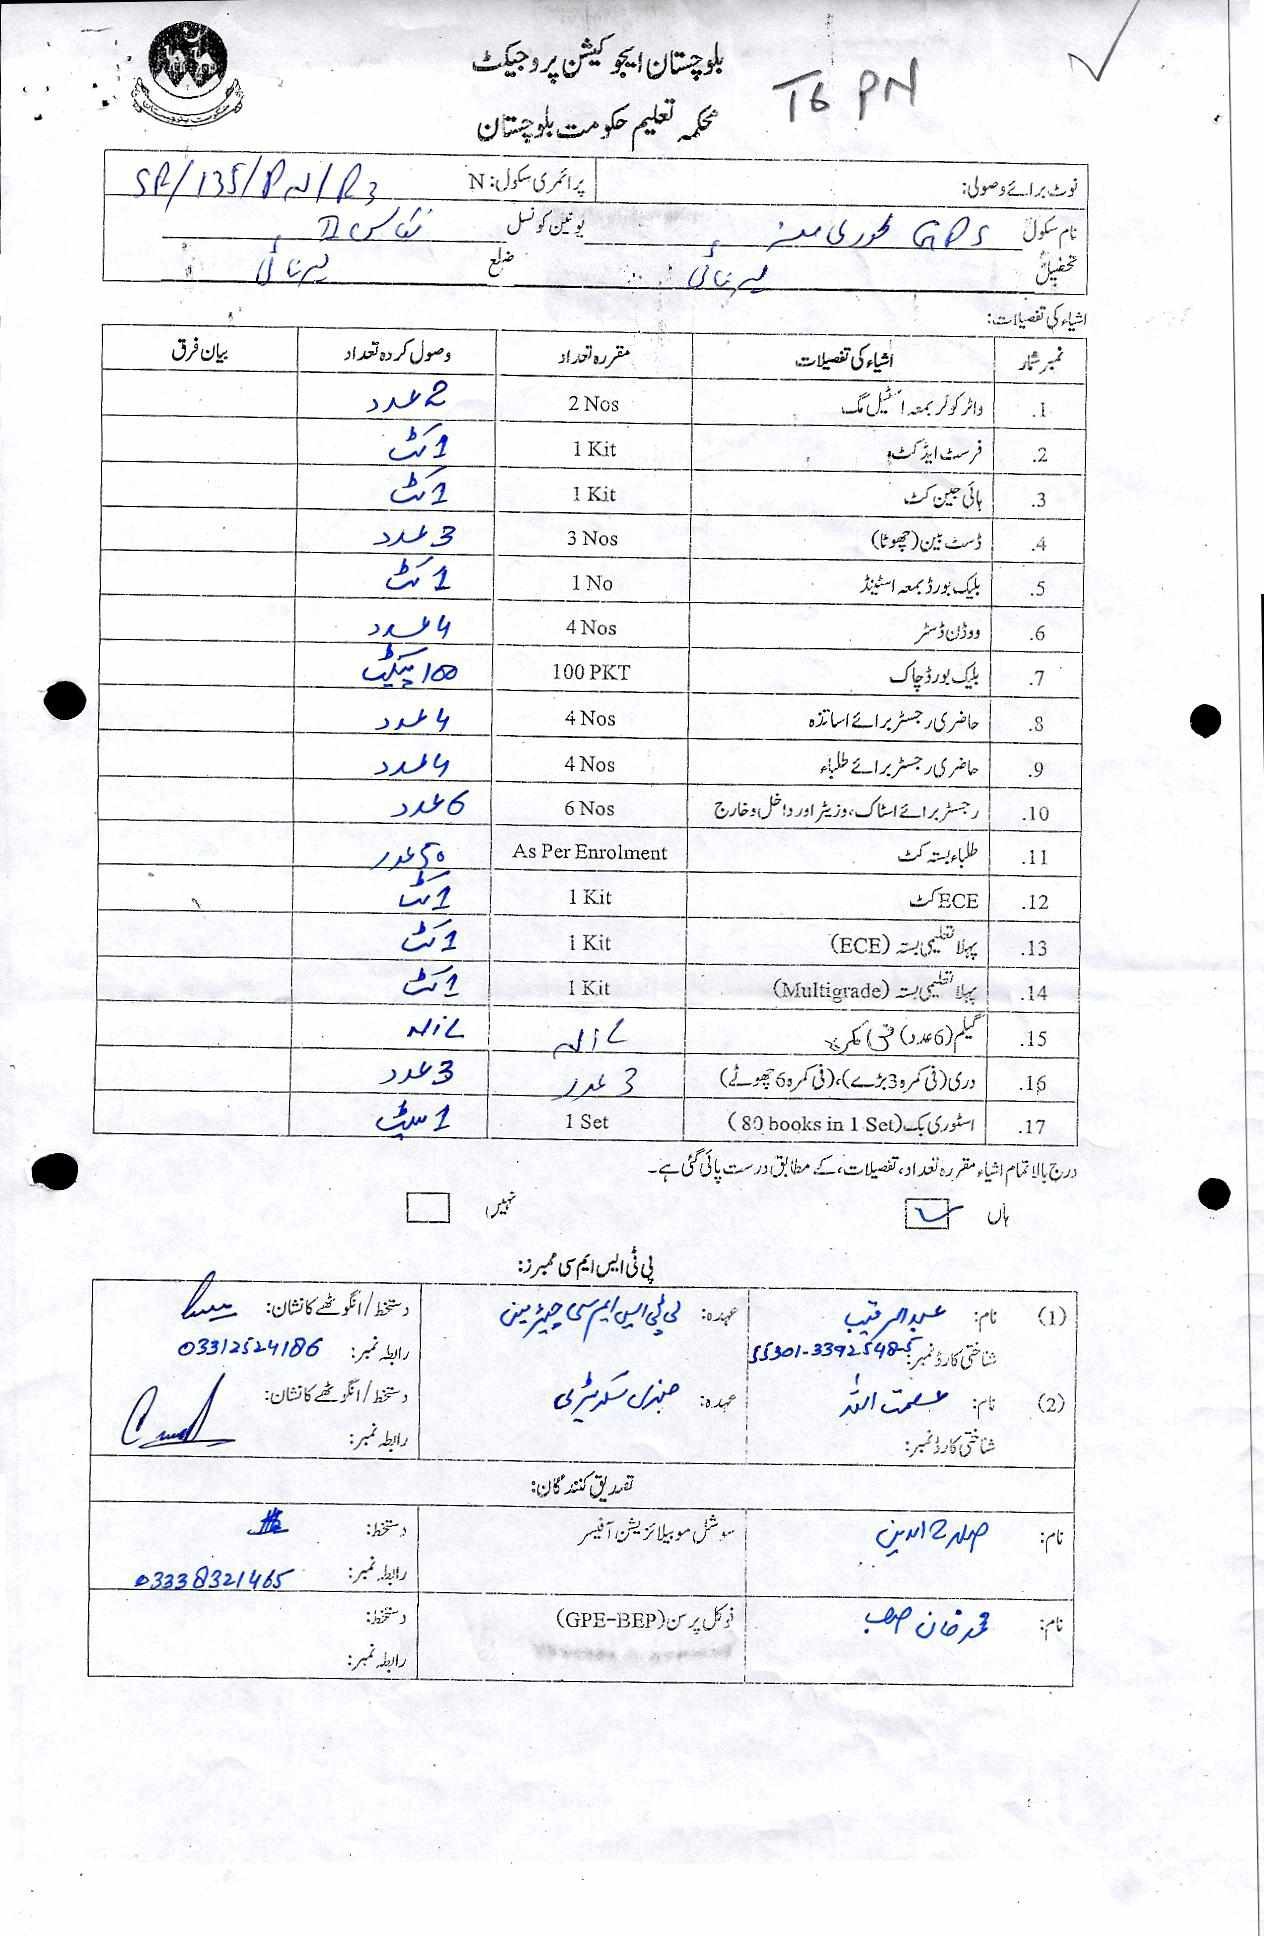 بلوچستان ایجوکیشن پروجیکٹ
T6 PN
محکمہ تعلیم حکومت بلوچستان
نوٹ برائے وصولی: پرائمری سکول: N SR/135/PN/R3
نام سکول GPS یونین کونسل
تحصیل ہرنائی ضلع ہرنائی
اشیاء کی تفصیلات:
نمبر شمار اشیاء کی تفصیلات مقررہ تعداد وصول کردہ تعداد بیان فرق
1. واٹر کولر بمعہ اسٹیل مگ 2 Nos 2 عدد
2. فرسٹ ایڈ کٹ 1 Kit 1 کٹ
3. ہائی جین کٹ 1 Kit 1 کٹ
4. ڈسٹ بین (چھوٹا) 3 Nos 3 عدد
5. بلیک بورڈ بمعہ اسٹینڈ 1 No 1 کٹ
6. ووڈن ڈسٹر 4 Nos 4 عدد
7. بلیک بورڈ چاک 100 PKT 100 پیکٹ
8. حاضری رجسٹر برائے اساتذہ 4 Nos 4 عدد
9. حاضری رجسٹر برائے طلباء 4 Nos 4 عدد
10. رجسٹر برائے اسٹاک، وزیٹر اور داخل و خارج 6 Nos 6 عدد
11. طلباء بستہ کٹ As Per Enrolment 50 عدد
12. ECE کٹ 1 Kit 1 کٹ
13. پہلا تعلیمی بستہ (ECE) 1 Kit 1 کٹ
14. پہلا تعلیمی بستہ (Multigrade) 1 Kit 1 کٹ
15. گلیم (6 عدد) فی کمرہ Nil Nil
16. دری (فی کمرہ 3 بڑے)، (فی کمرہ 6 چھوٹے) 3 عدد 3 عدد
17. اسٹوری بک (80 books in 1 Set) 1 Set 1 سیٹ
درج بالا تمام اشیاء مقررہ تعداد، تفصیلات، کے مطابق درست پائی گئی ہے۔
ہاں نہیں
پی ٹی ایس ایم سی ممبرز:
(1) نام: عبدالرقیب عہدہ: پی ٹی ایس ایم سی چیئرمین دستخط/انگوٹھے کا نشان:
شناختی کارڈ نمبر: 55301-3392548-5 رابطہ نمبر: 03312524186
(2) نام: عصمت اللہ عہدہ: جنرل سکریٹری دستخط/انگوٹھے کا نشان:
شناختی کارڈ نمبر: رابطہ نمبر:
تصدیق کنندگان:
نام: صلاح الدین سوشل موبیلائزیشن آفیسر دستخط:
رابطہ نمبر: 03338321465
نام: محمد خان صاحب فوکل پرسن (GPE-BEP) دستخط:
رابطہ نمبر: